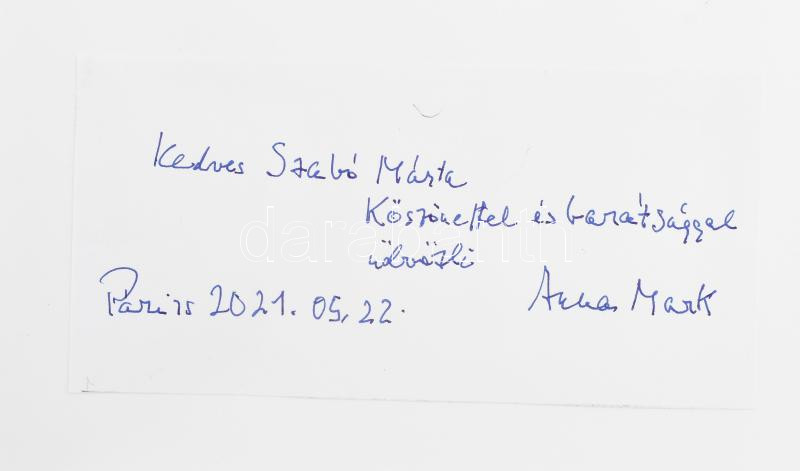 Kedves Szabó Márta
Köszönettel és barátsággal
üdvözli
Párizs 2021. 05. 22.
Anna Mark
darabanth